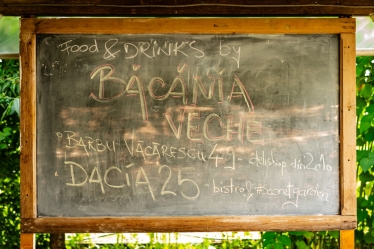 Food & DRINKS by
BĂCĂNIA
VECHE
BARBU VĂCĂRESCU 41 - delishop din 2010
DACIA 25 - bistro, #secretgarden